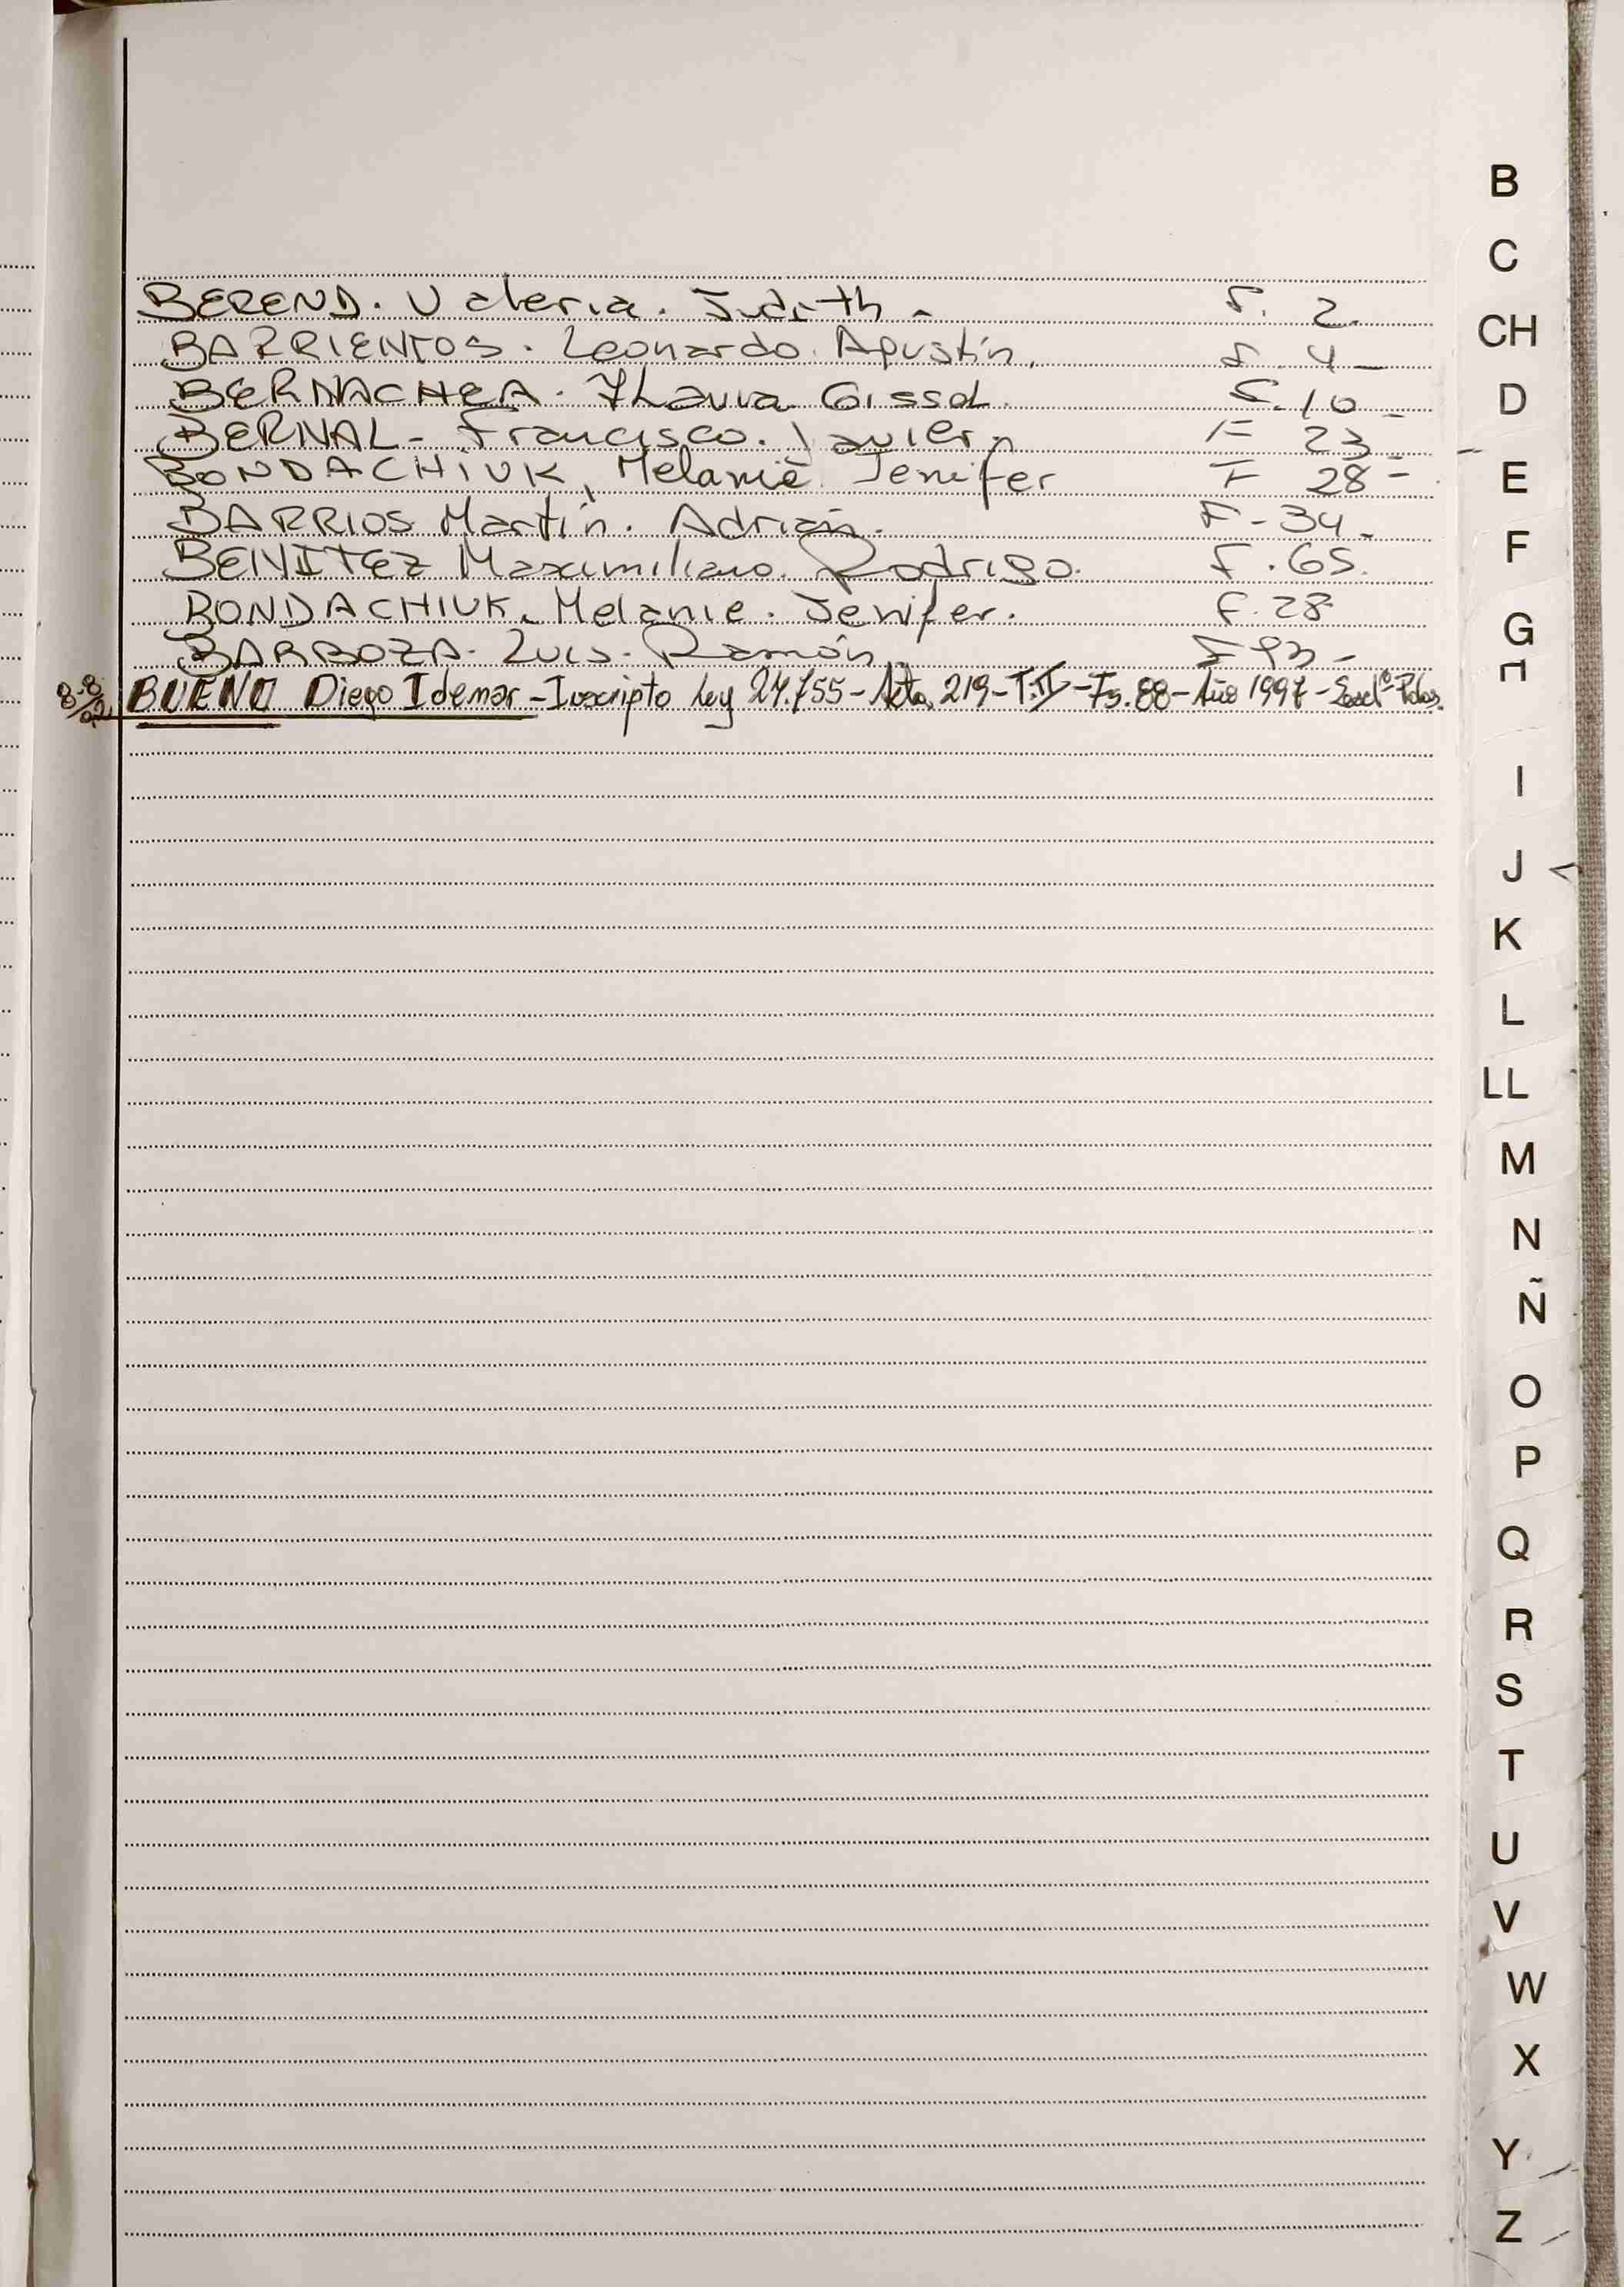 BEREND. Valeria. Judith - F. 2.
BARRIENTOS. Leonardo Agustín. F 4 -
BERNACHEA. Flavia Gissel. F. 10 -
BERNAL - Francisco. Javier - F 23 -
BONDACHIUK, Melanie Jenifer F 28 -
BARRIOS Martín. Adrián. F - 34 -
BENITEZ Maximiliano Rodrigo. F. 65.
BONDACHIUK. Melanie. Jenifer. F. 28
BARBOZA. Luis. Ramón F 93 -
BUENO Diego Idemar - Inscripto Ley 24.755 - Acta 219 - T: II - Fs. 88 - Año 1997 -
B
C
CH
D
E
F
G
I
J
K
L
LL
M
N
Ñ
O
P
Q
R
S
T
U
V
W
X
Y
Z